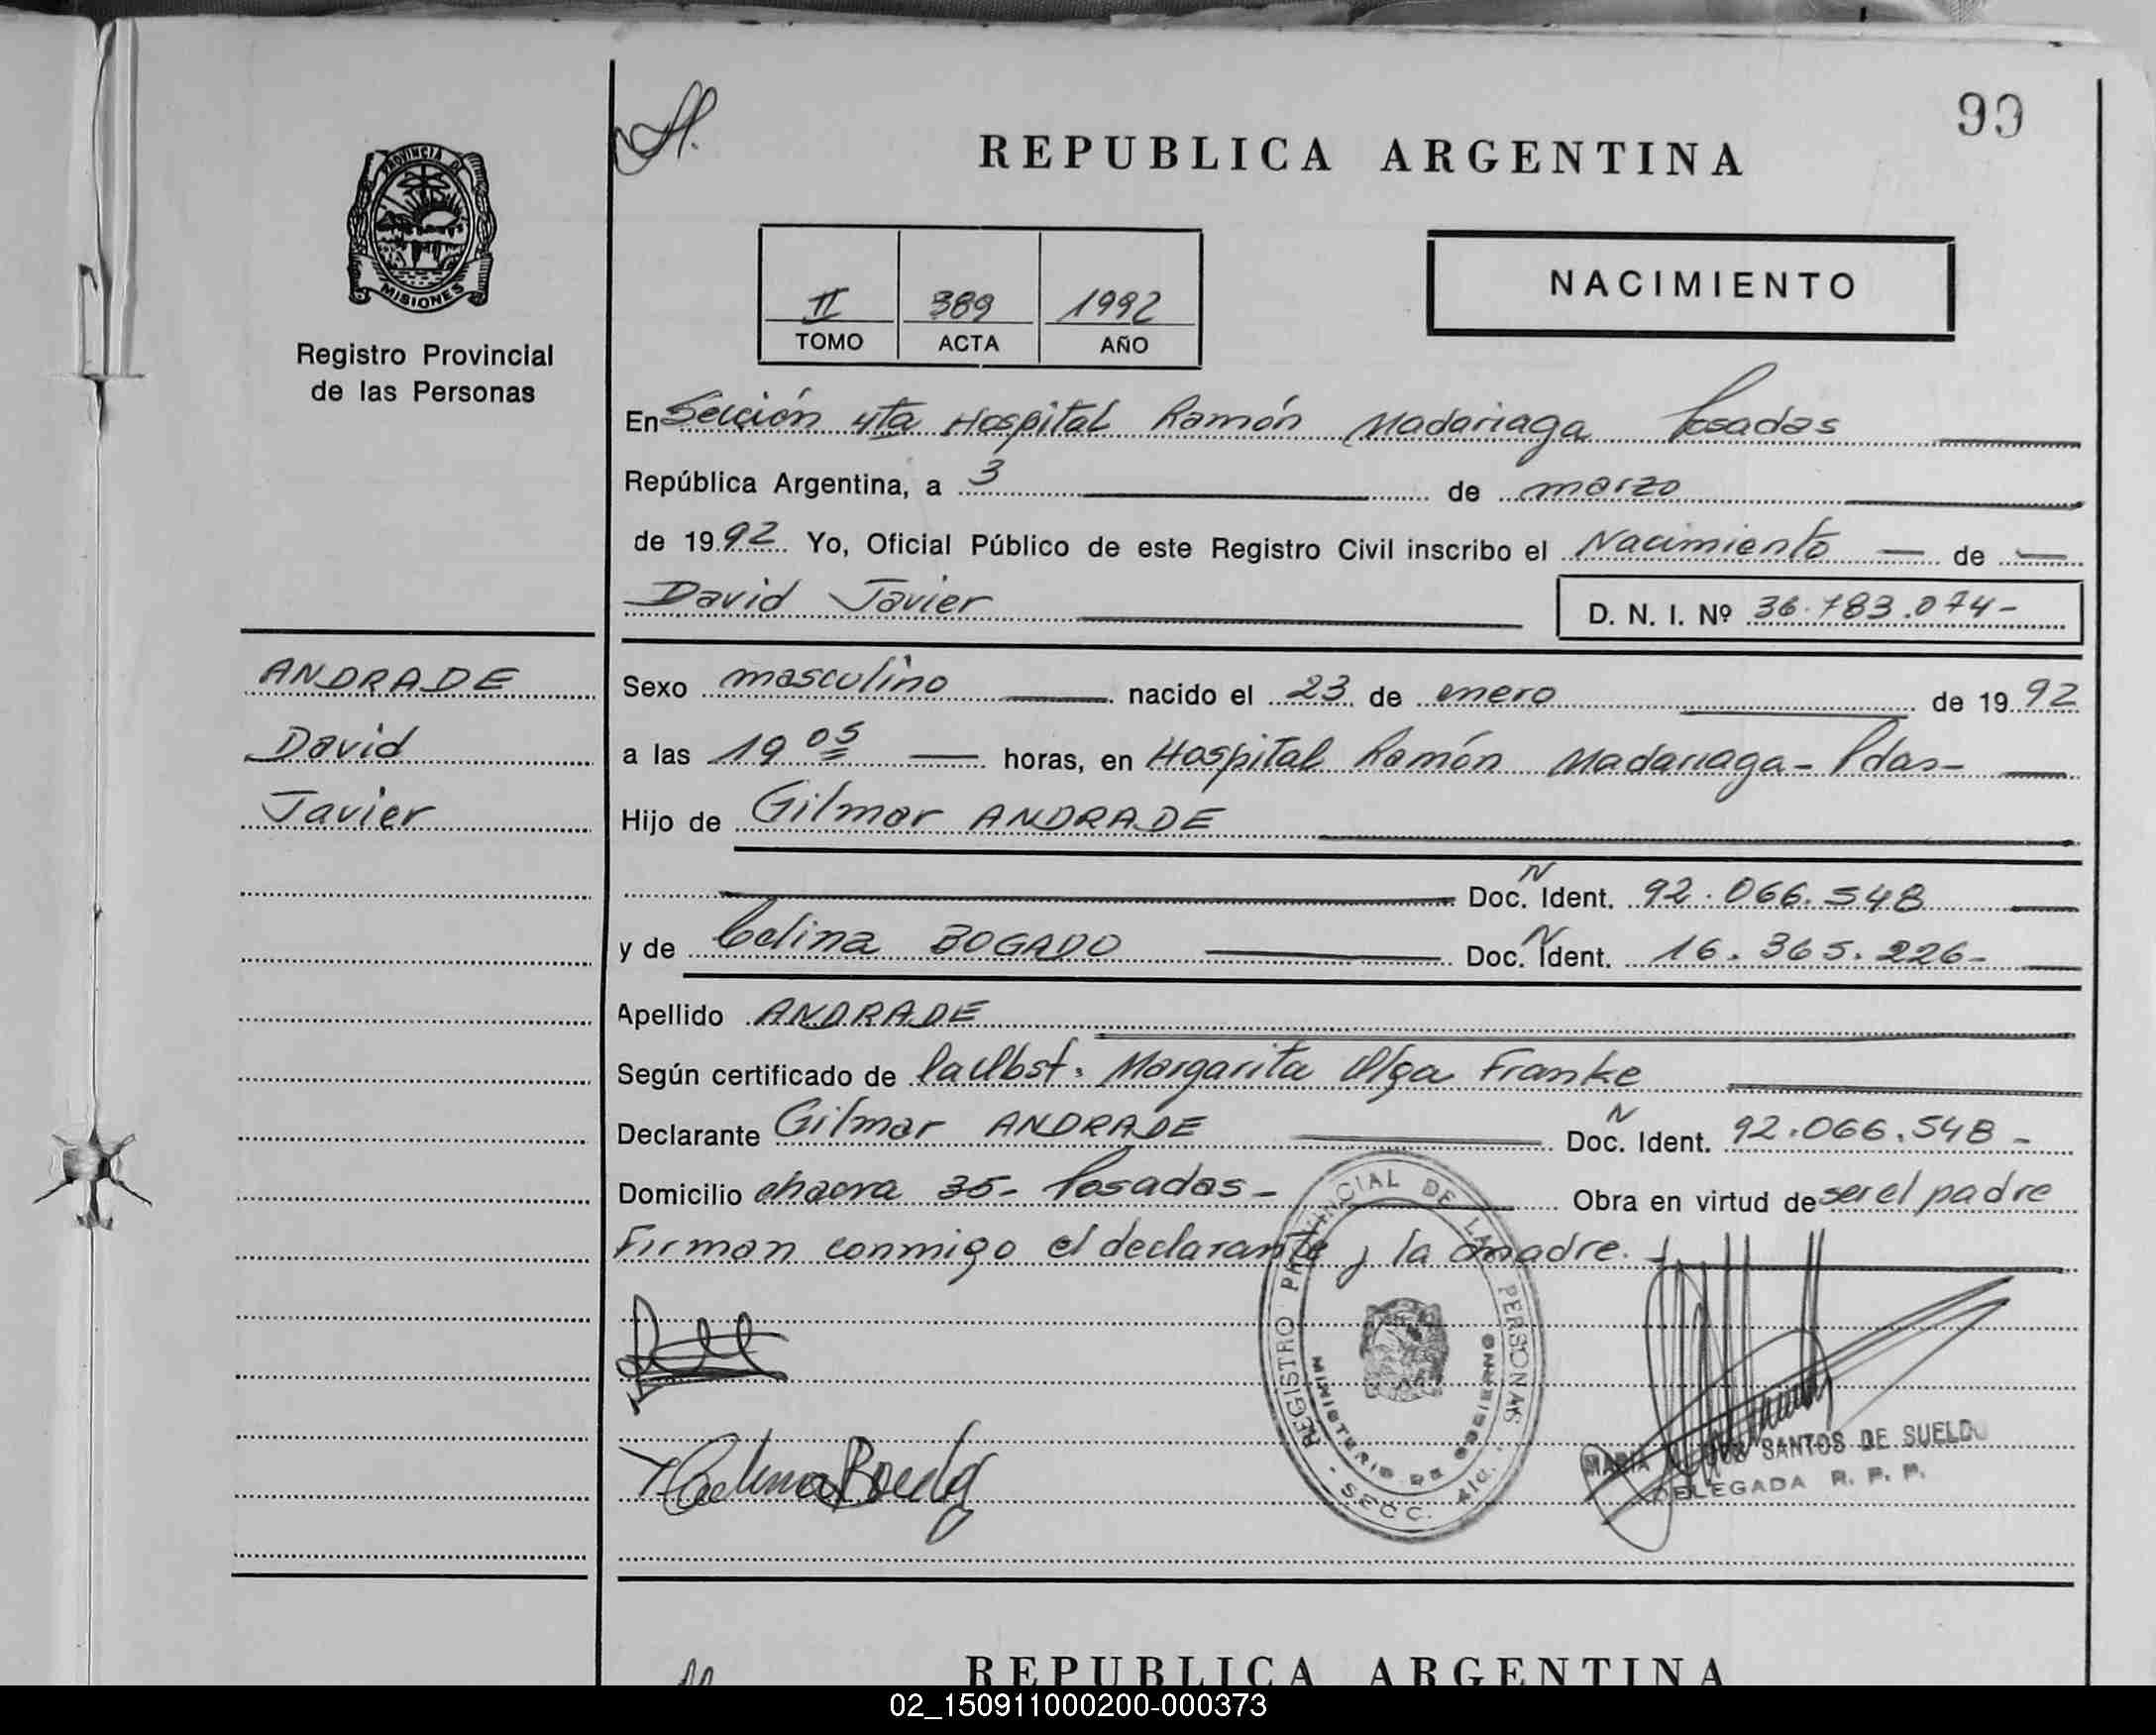 99
PROVINCIA DE
MISIONES
Registro Provincial
de las Personas
REPUBLICA ARGENTINA
NACIMIENTO
II 389 1992
TOMO ACTA AÑO
En Sección 4ta Hospital Ramón Madariaga Posadas
República Argentina, a 3 de marzo
de 1992 Yo, Oficial Público de este Registro Civil inscribo el Nacimiento de
David Javier D. N. I. Nº 36.783.074-
ANDRADE
David
Javier
Sexo masculino nacido el 23 de enero de 1992
a las 19 05 horas, en Hospital Ramón Madariaga - Pdas-
Hijo de Gilmar ANDRADE
Doc. N Ident. 92.066.548
y de Celina BOGADO Doc. N Ident. 16.365.226-
Apellido ANDRADE
Según certificado de la Obst. Margarita Olga Franke
Declarante Gilmar ANDRADE Doc. N Ident. 92.066.548-
Domicilio chacra 35- Posadas- Obra en virtud de ser el padre
Firman conmigo el declarante y la madre.
REGISTRO PROVINCIAL DE LAS PERSONAS
MINISTERIO DE GOBIERNO
SECC. 4ta.
MARIA SANTOS DE SUELDO
DELEGADA R. P. P.
REPUBLICA ARGENTINA
02_150911000200-000373